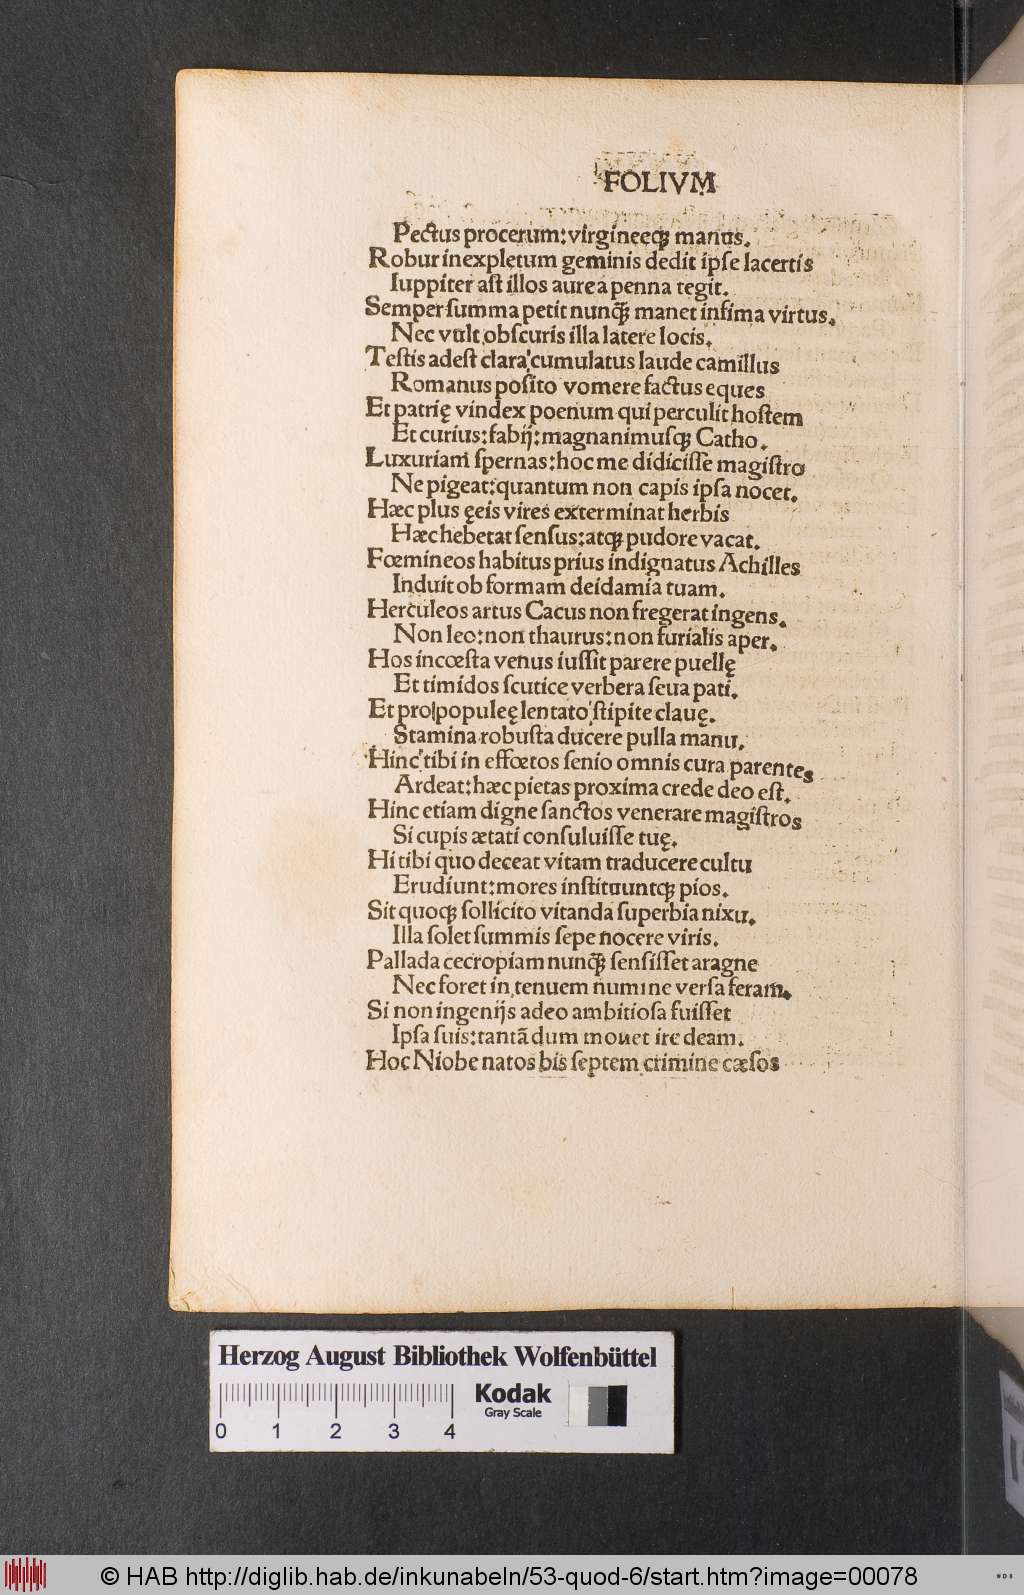 FOLIVM
Pectus procerum: virgineeqꝫ manus.
Robur inexpletum geminis dedit ipſe lacertis
Iuppiter aſt illos aurea penna tegit.
Semper ſumma petit nunq̃ꝫ manet infima virtus.
Nec vult obſcuris illa latere locis.
Teſtis adeſt clara cumulatus laude camillus
Romanus poſito vomere factus eques
Et patrię vindex poenum qui perculit hoſtem
Et curius: fabij: magnanimuſqꝫ Catho.
Luxuriam ſpernas: hoc me didiciſſe magiſtro
Ne pigeat: quantum non capis ipſa nocet.
Hæc plus ęeis vires exterminat herbis
Hæc hebetat ſenſus: atqꝫ pudore vacat.
Fœmineos habitus prius indignatus Achilles
Induit ob formam deidamia tuam.
Herculeos artus Cacus non fregerat ingens.
Non leo: non thaurus: non furialis aper.
Hos incœſta venus iuſſit parere puellę
Et timidos ſcutice verbera ſeua pati.
Et pro populeę lentato ſtipite clauę.
Stamina robuſta ducere pulla manu.
Hinc tibi in effœtos ſenio omnis cura parentes
Ardeat: hæc pietas proxima crede deo eſt.
Hinc etiam digne ſanctos venerare magiſtros
Si cupis ætati conſuluiſſe tuę.
Hi tibi quo deceat vitam traducere cultu
Erudiunt: mores inſtituuntqꝫ pios.
Sit quoqꝫ ſollicito vitanda ſuperbia nixu.
Illa ſolet ſummis ſepe nocere viris.
Pallada cecropiam nunq̃ꝫ ſenſiſſet aragne
Nec foret in tenuem numine verſa feram.
Si non ingenijs adeo ambitioſa fuiſſet
Ipſa ſuis: tantã dum mouet ire deam.
Hoc Niobe natos bis ſeptem crimine cæſos
Herzog August Bibliothek Wolfenbüttel
Kodak
Gray Scale
0 1 2 3 4
© HAB http://diglib.hab.de/inkunabeln/53-quod-6/start.htm?image=00078